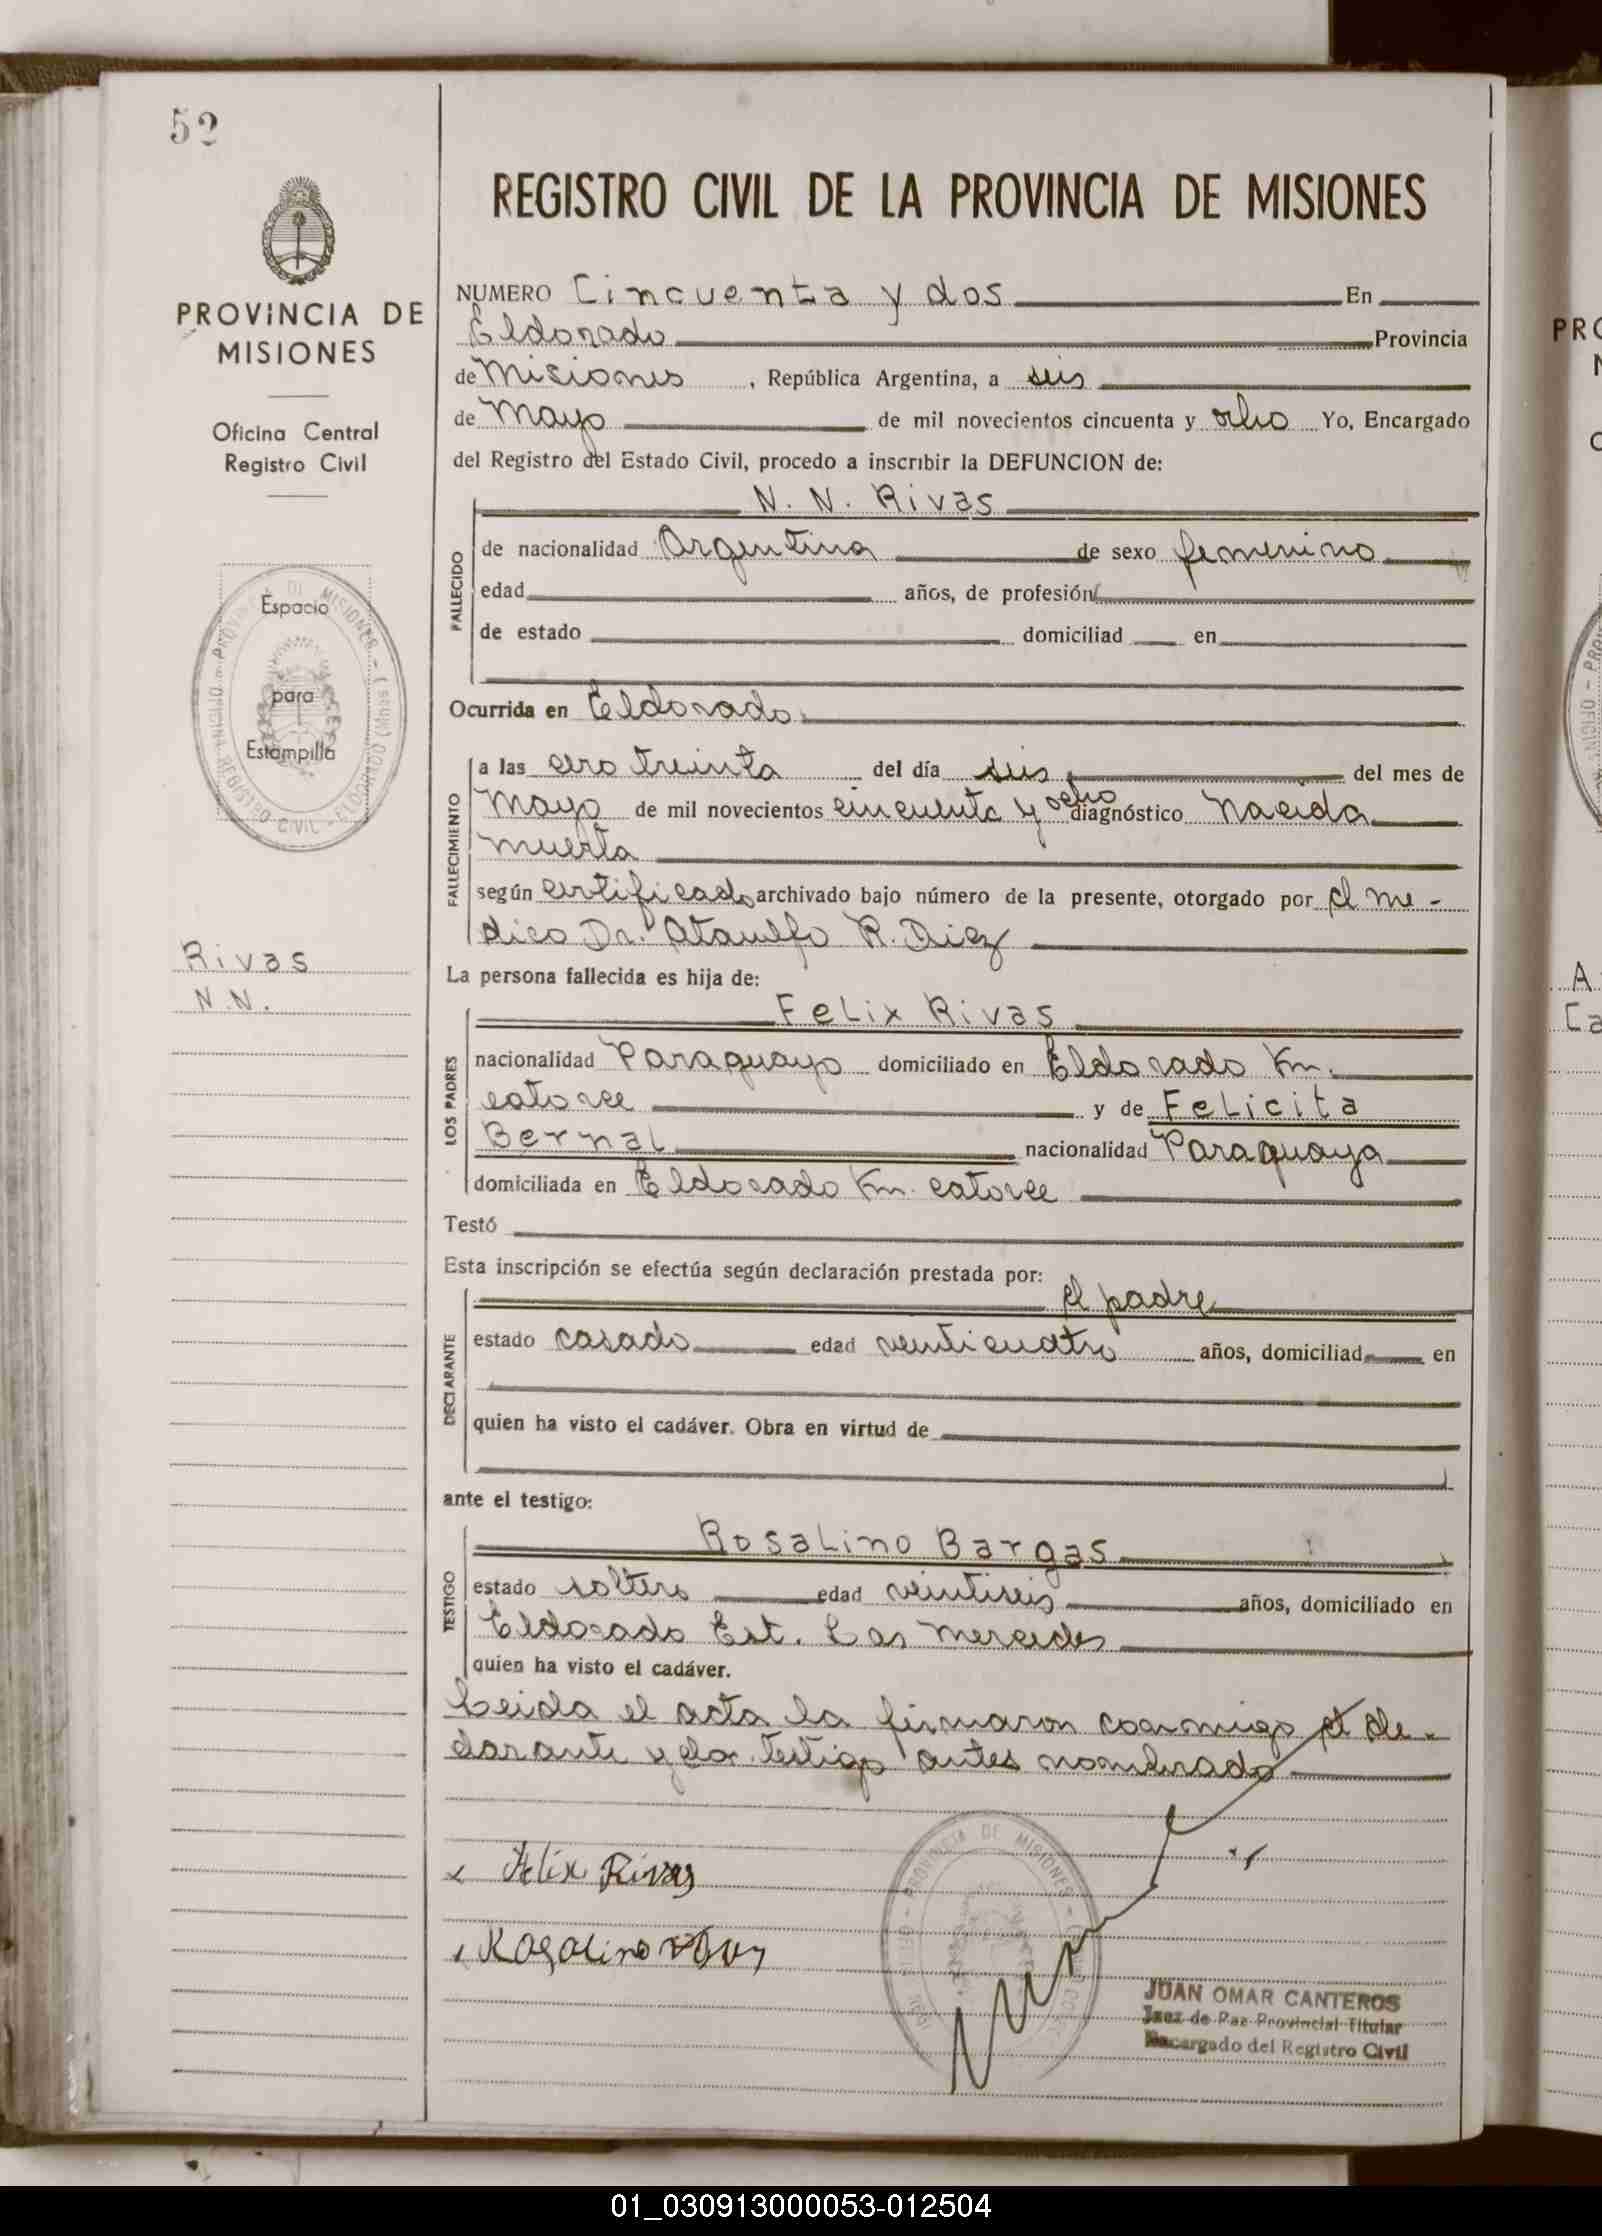 52
PROVINCIA DE
MISIONES
Oficina Central
Registro Civil
Espacio
para
Estampilla
Rivas
N.N.
REGISTRO CIVIL DE LA PROVINCIA DE MISIONES
NUMERO Cincuenta y dos En
Eldorado Provincia
de Misiones, República Argentina, a seis
de Mayo de mil novecientos cincuenta y ocho Yo, Encargado
del Registro del Estado Civil, procedo a inscribir la DEFUNCION de:
N. N. Rivas
FALLECIDO
de nacionalidad Argentina de sexo femenino
edad años, de profesión
de estado domiciliad en
Ocurrida en Eldorado
FALLECIMIENTO
a las cero treinta del día seis del mes de
Mayo de mil novecientos cincuenta y ocho diagnóstico Nacida
muerta
según certificado archivado bajo número de la presente, otorgado por el me-
dico Dr. Ataulfo R. Diez
La persona fallecida es hija de:
LOS PADRES
Felix Rivas
nacionalidad Paraguayo domiciliado en Eldorado Km.
catorce y de Felicita
Bernal nacionalidad Paraguaya
domiciliada en Eldorado Km. catorce
Testó
Esta inscripción se efectúa según declaración prestada por:
el padre
DECLARANTE
estado casado edad venticuatro años, domiciliad en
quien ha visto el cadáver. Obra en virtud de
ante el testigo:
Rosalino Bargas
TESTIGO
estado soltero edad veintiseis años, domiciliado en
Eldorado Est. Las Mercedes
quien ha visto el cadáver.
Leida el acta la firmaron conmigo el de-
clarante y el testigo antes nombrado
Felix Rivas
Rosalino
JUAN OMAR CANTEROS
Juez de Paz Provincial Titular
Encargado del Registro Civil
01_030913000053-012504